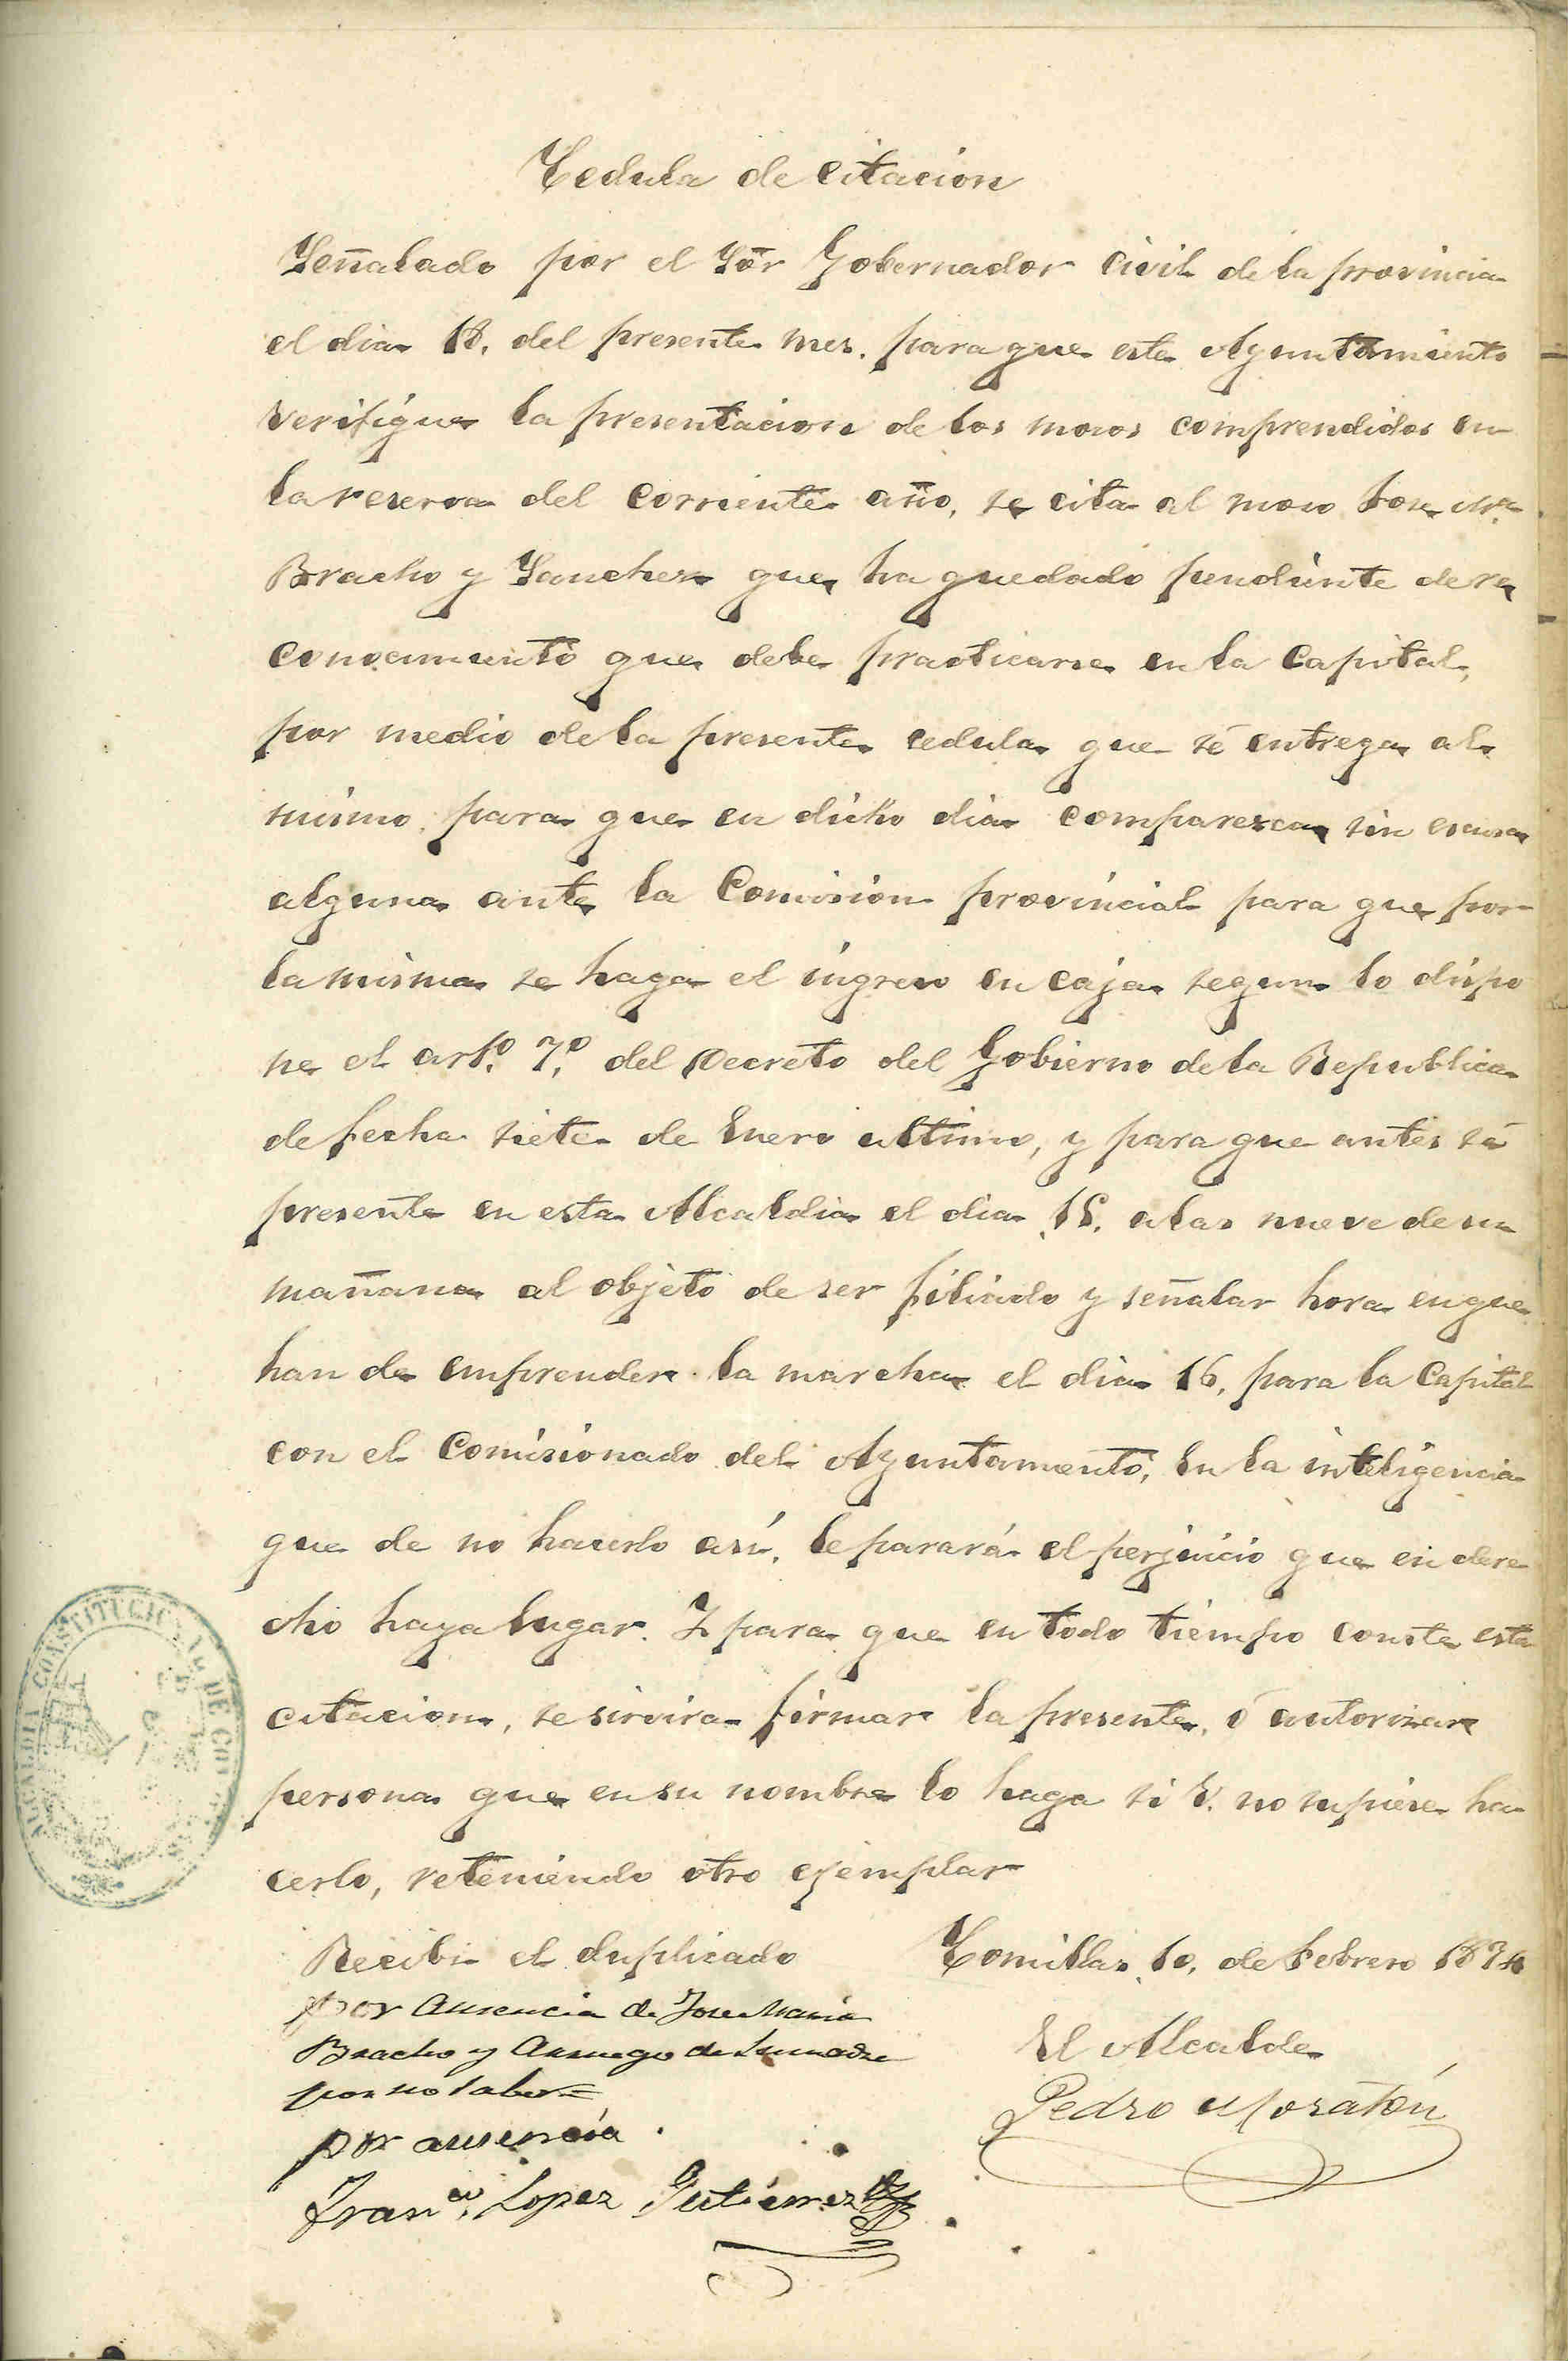 Cedula de citacion
Señalado por el Sor Gobernador Civil de la provincia
el dia 18. del presente mes. para que este Ayuntamiento
verifique la presentacion de los mozos comprendidos en
la reserva del corriente año, se cita al mozo Jose Mª
Bracho y Sanchez que ha quedado pendiente de re
conocimiento que debe practicarse en la Capital,
por medio de la presente cedula que se entrega al
mismo, para que en dicho dia comparezca sin escusa
alguna ante la Comision provincial para que por
la misma se haga el ingreso en caja segun lo dispo
ne el artº. 7º. del Decreto del Gobierno de la Republica
de fecha siete de Enero ultimo, y para que antes se
presente en esta Alcaldia el dia 15. a las nueve de su
mañana al objeto de ser filiado y señalar hora en que
han de emprender la marcha el dia 16, para la Capital
con el Comisionado del Ayuntamiento, En la inteligencia
que de no hacerlo así, le parará el perjuicio que en dere
cho haya lugar. Y para que en todo tiempo conste esta
citacion, se servira firmar la presente, ó autorizar
persona que en su nombre lo haga si V. no supiese ha
cerlo, reteniendo otro ejemplar
Recibi el duplicado
por Ausencia de Jose Maria
Bracho y Arruego de su madre
por no saber=
por ausencia
Franco. Lopez Gutierrez
Comillas 10, de Febrero 1874
El Alcalde
Pedro Moratón
ALCALDIA CONSTITUCIONAL DE